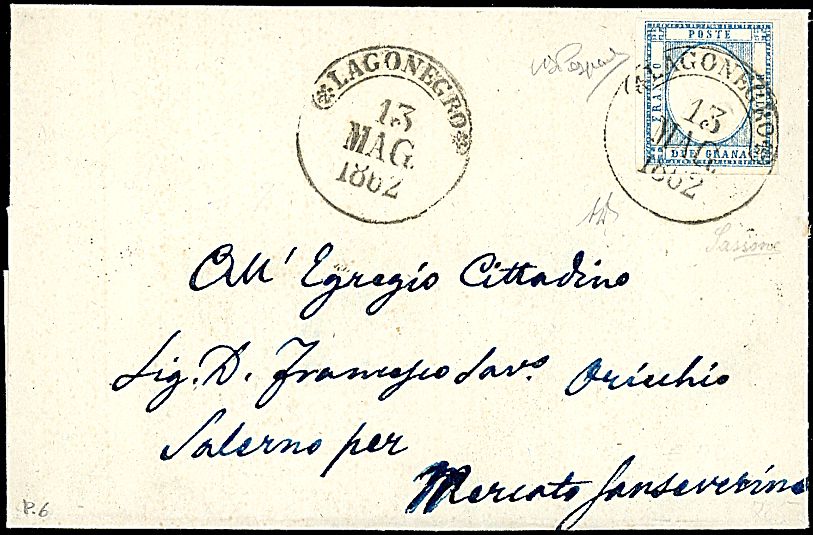 LAGONEGRO
13
MAG.
1862
POSTE
FRANCO
BOLLO
DUE GRANA
LAGONEGRO
13
MAG.
1862
Sassone
All' Egregio Cittadino
Sig. D. Francesco Sav.º Oricchio
Salerno per
Mercato Sanseverino
P.6